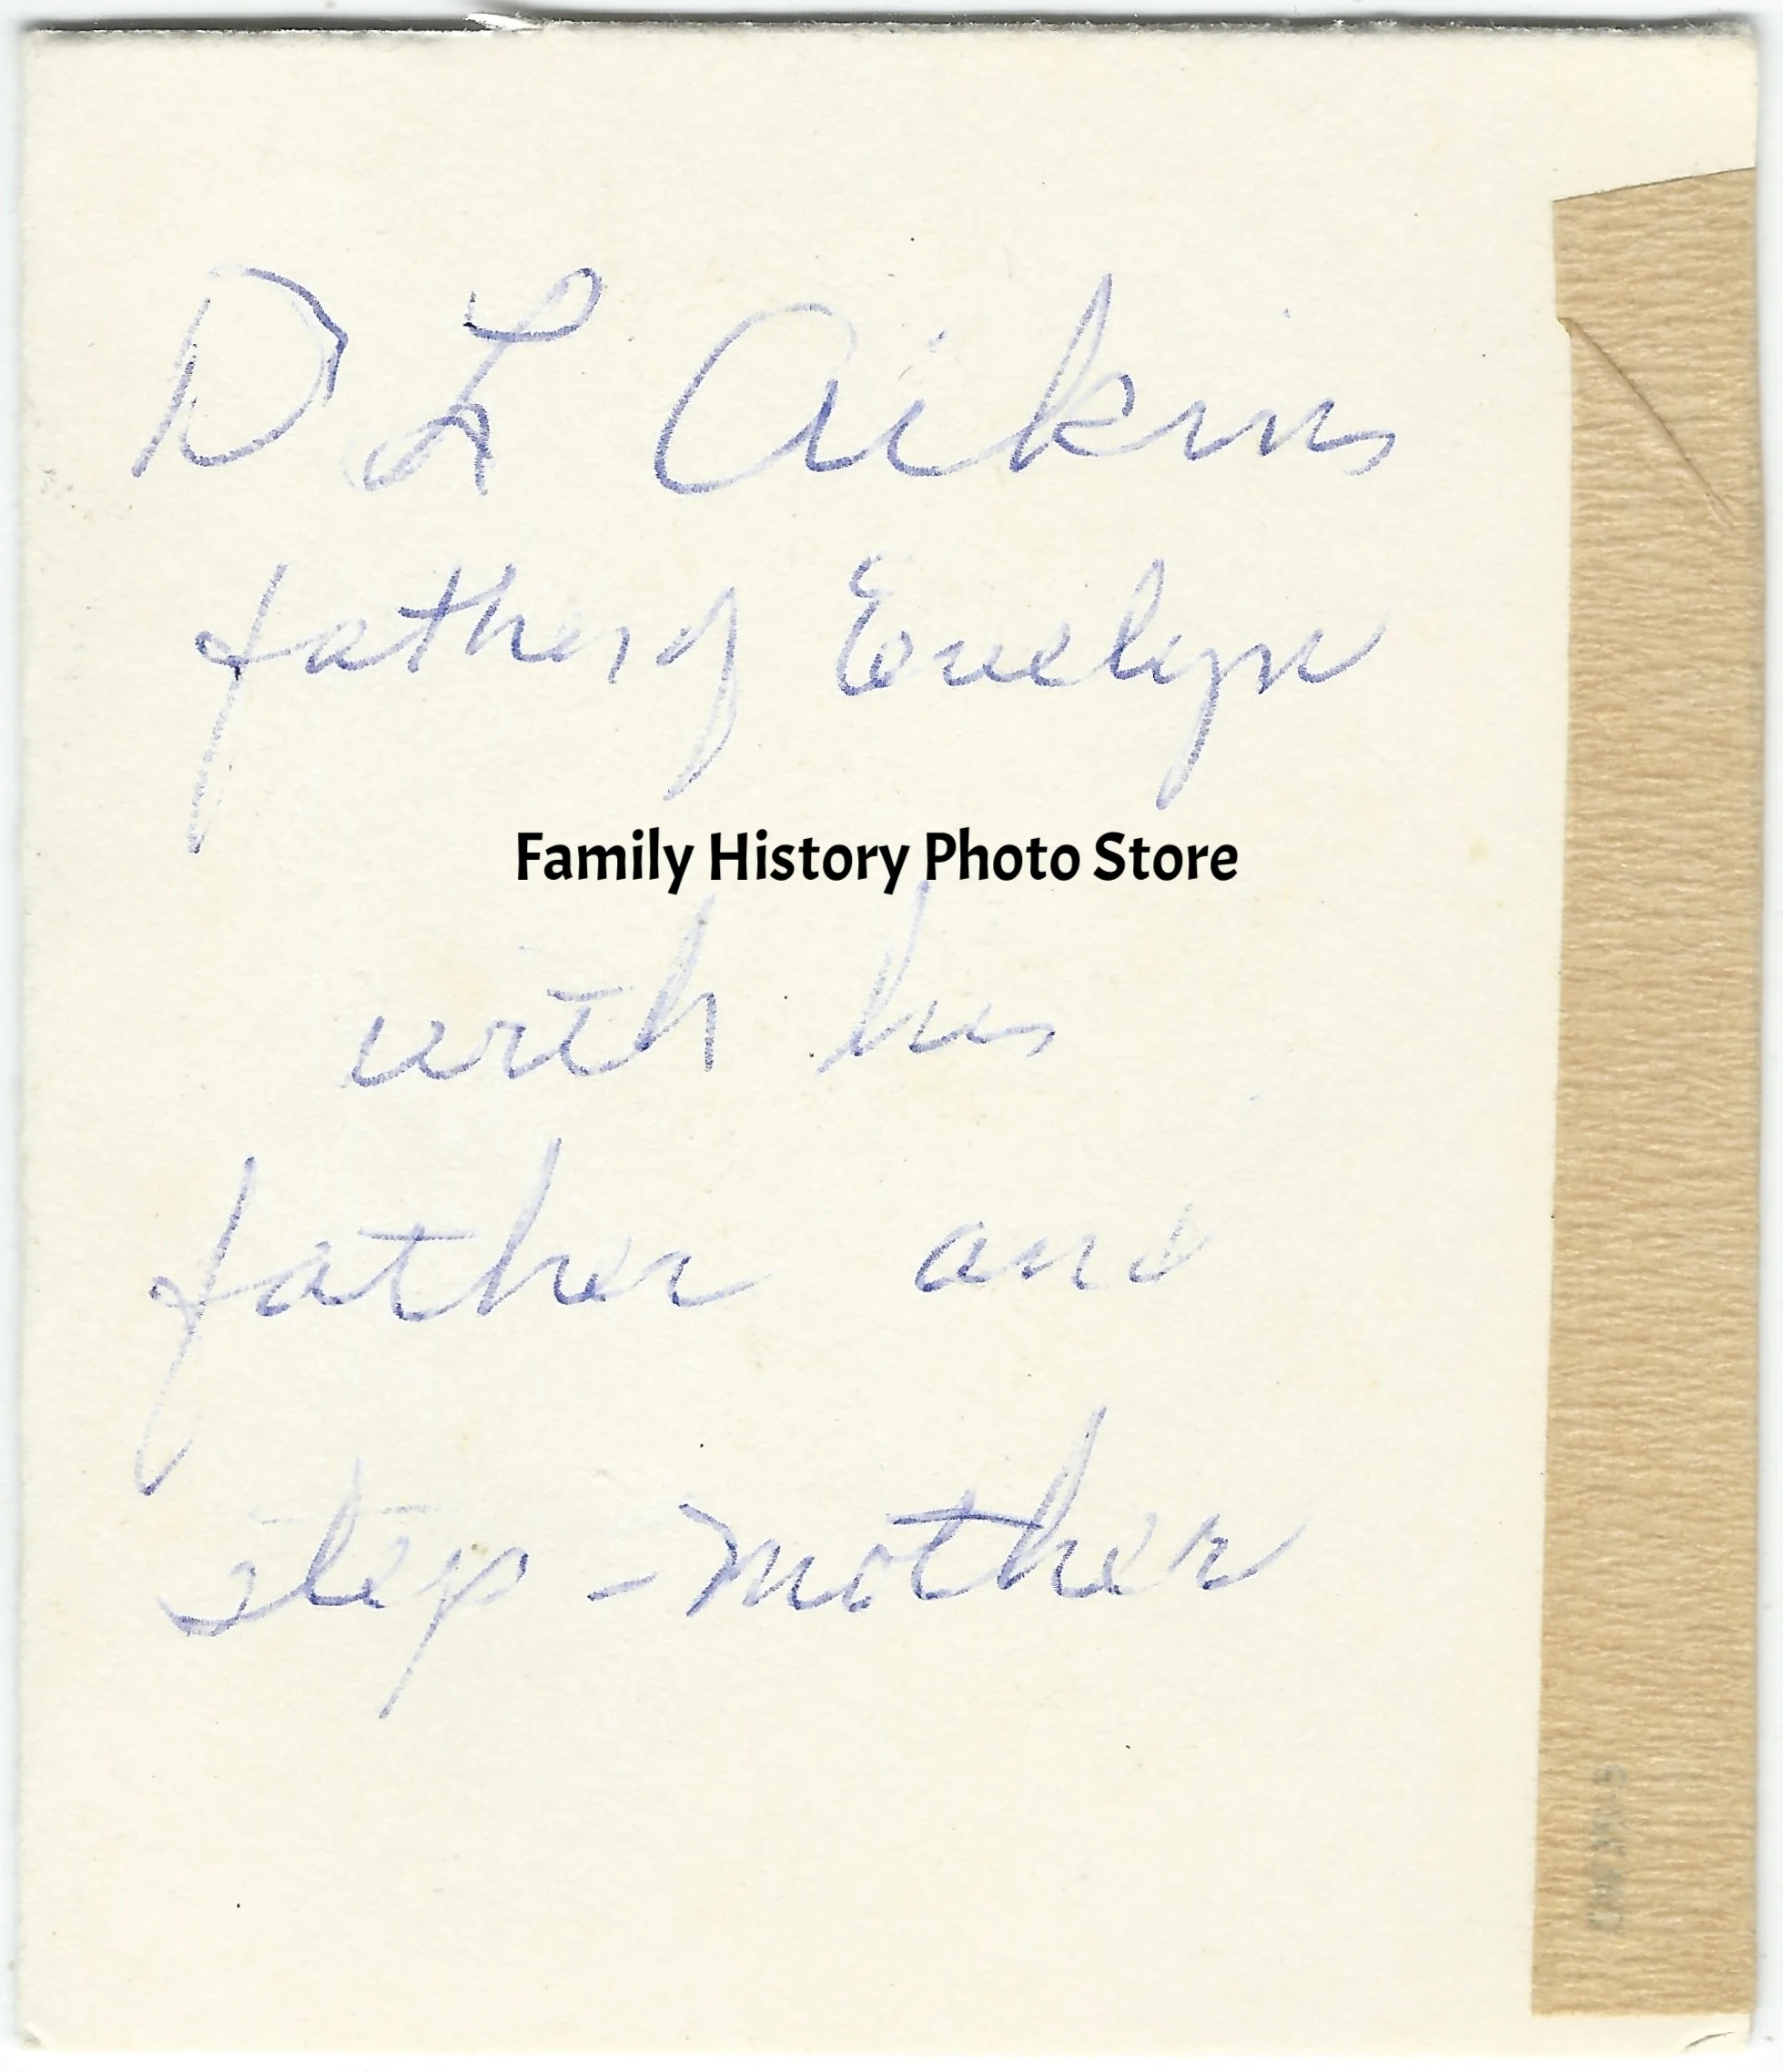 D L Aikins
father of Evelyn
Family History Photo Store
with his
father and
step-mother